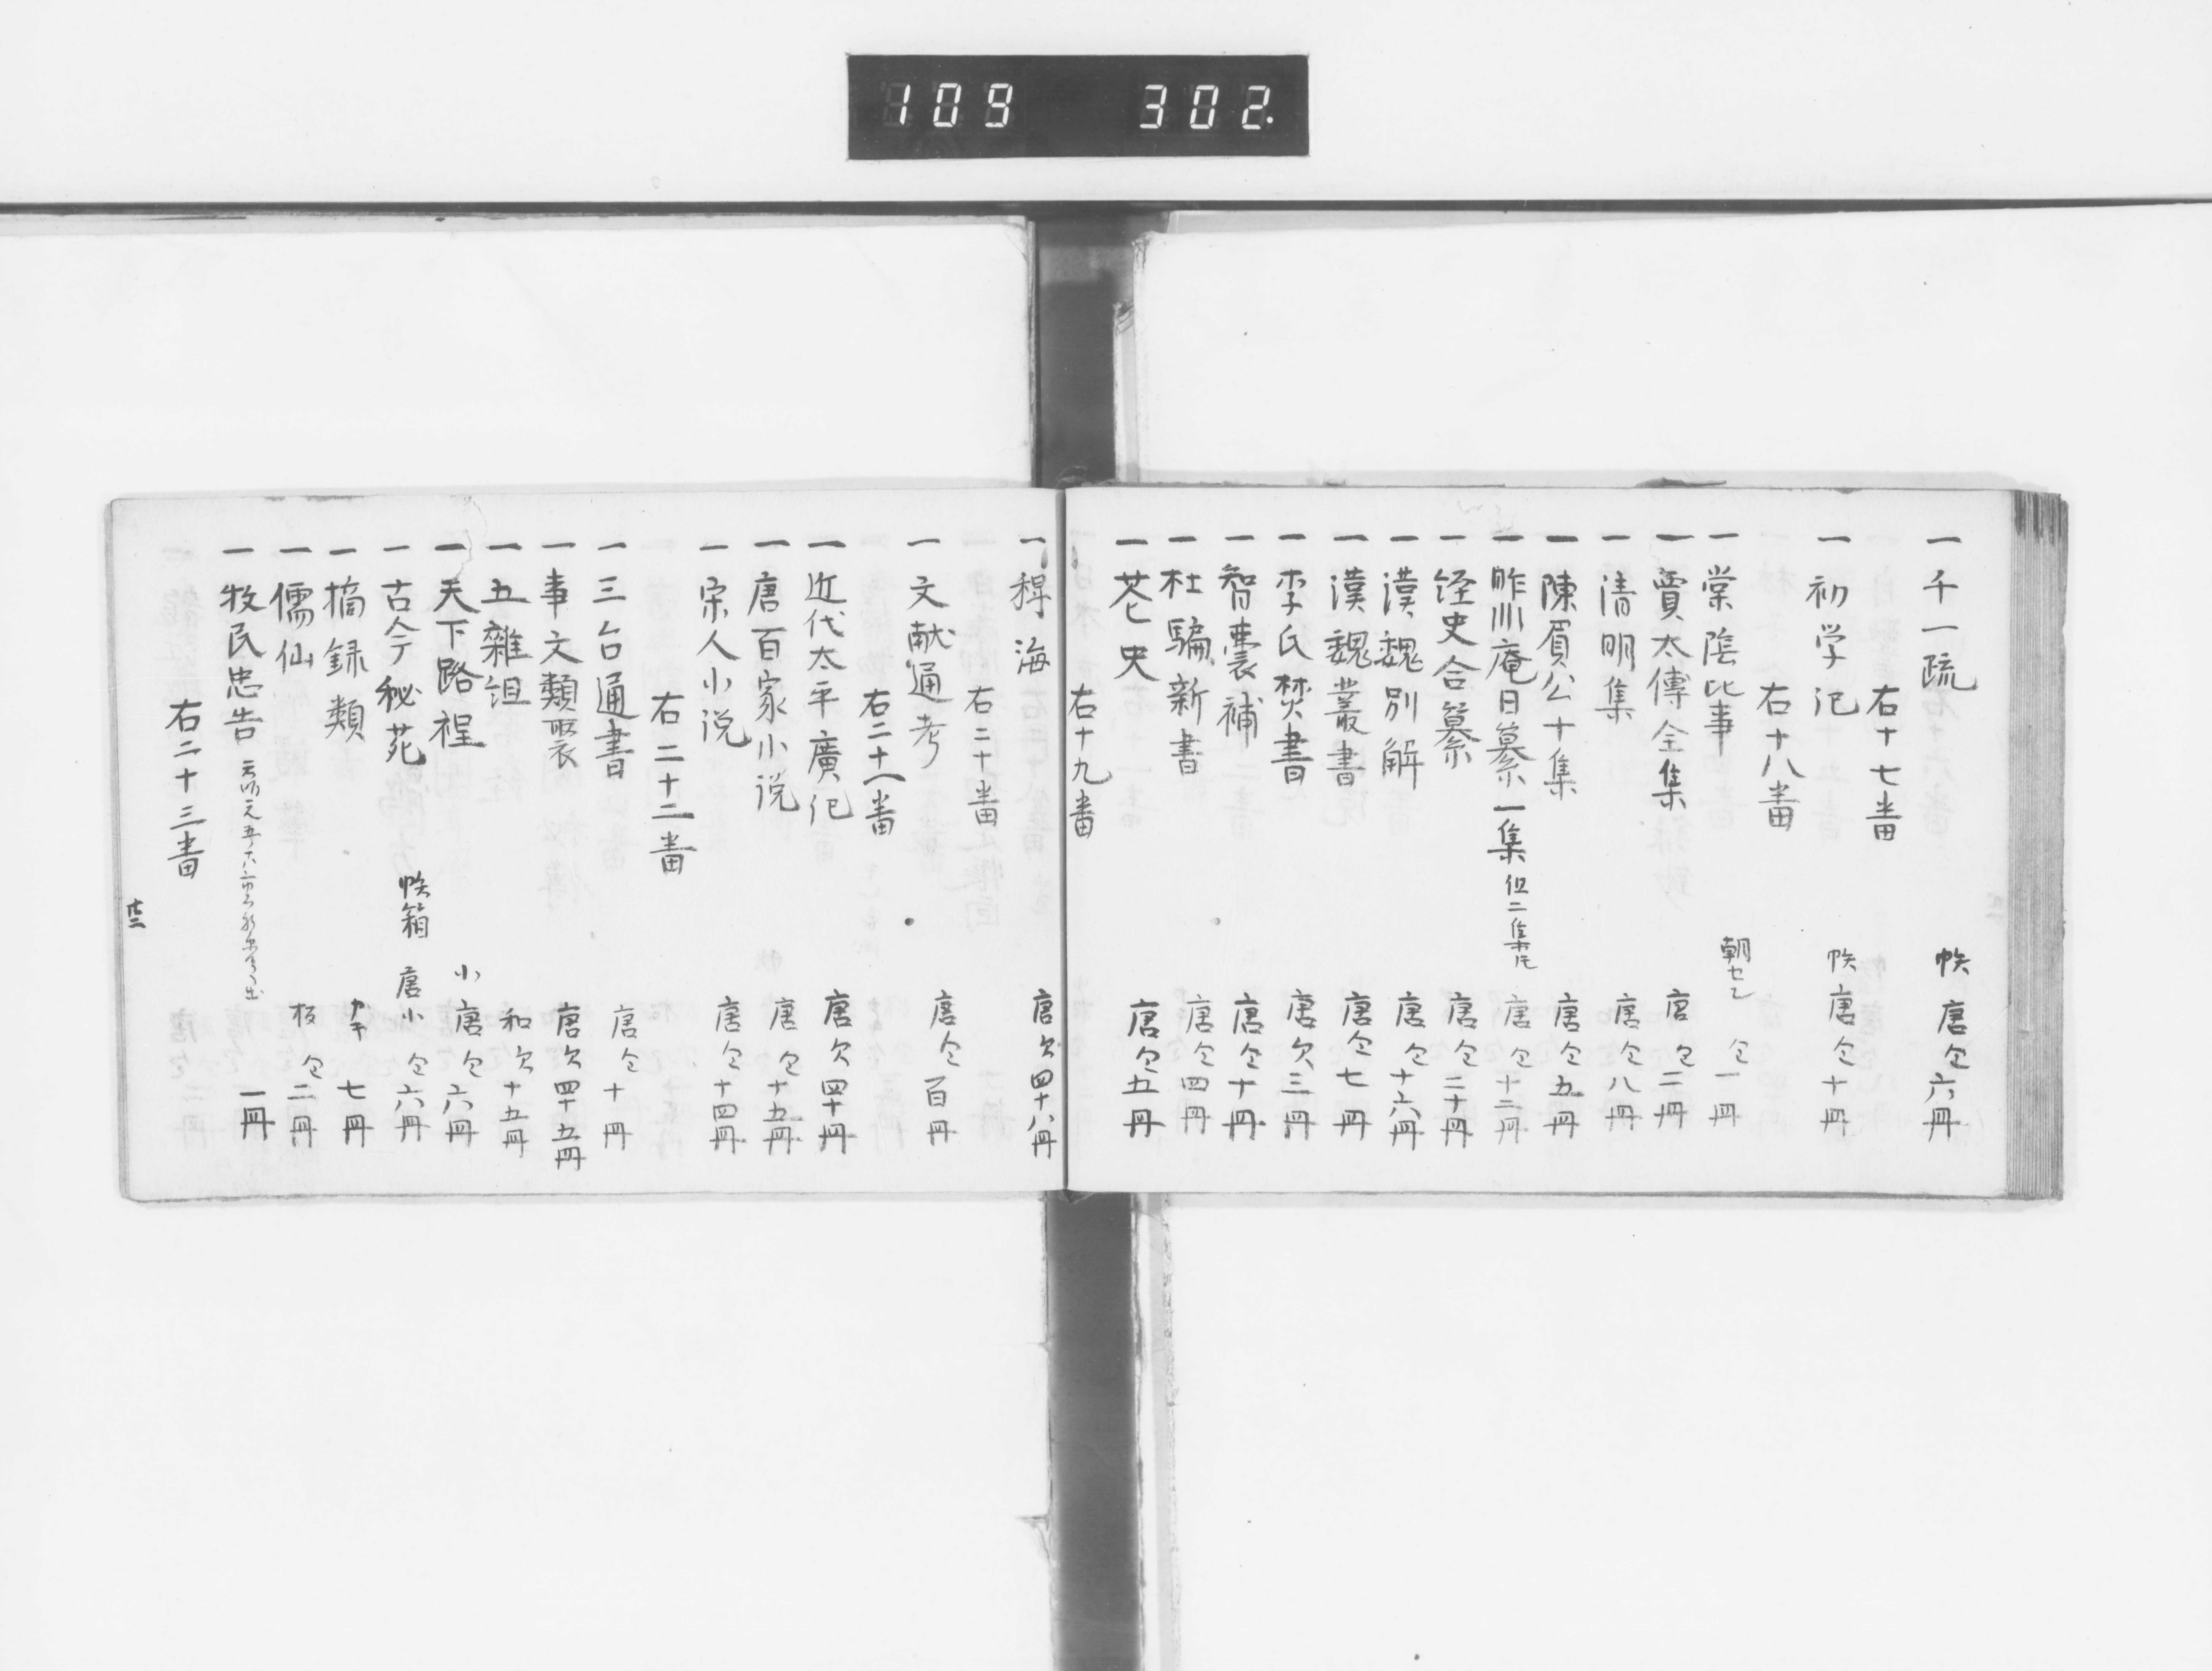 109 302.
一 千一疏 帙 唐仝六冊
右十七番
一 初学記 帙 唐仝十冊
右十八番
一 棠陰比事 朝セン 仝一冊
一 賈太傅全集 唐仝二冊
一 清明集 唐仝八冊
一 陳眉公十集 唐仝五冊
一 昨非庵日纂一集 但二集共 唐仝十二冊
一 経史合纂 唐仝二十冊
一 漢魏別解 唐仝十六冊
一 漢魏叢書 唐仝七冊
一 李氏焚書 唐欠三冊
一 智嚢補 唐仝十冊
一 杜騙新書 唐仝四冊
一 芒史 唐仝五冊
右十九番
一 稗海 唐欠四十八冊
右二十番
一 文献通考 唐仝百冊
右二十一番
一 近代太平廣記 唐欠四十冊
一 唐百家小説 唐仝十五冊
一 宋人小説 唐仝十四冊
右二十二番
一 三台通書 唐仝十冊
一 事文類聚 唐欠四十五冊
一 五雜俎 和欠十五冊
一 天下路程 小唐仝六冊
一 古今秘苑 帙箱 唐小仝六冊
一 摘録類 カキ 七冊
一 儒仙 板仝二冊
一 牧民忠告 一冊
右二十三番